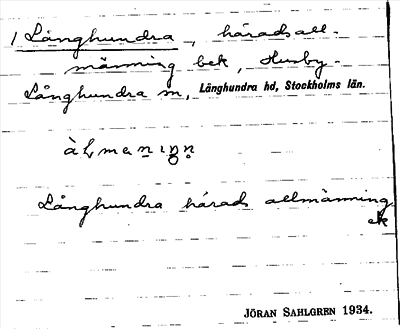 1 Långhundra, härads all-
männing bek, Husby-
Långhundra sn, Långhundra hd, Stockholms län.
Långhundra härads allmänning
ek
JÖRAN SAHLGREN 1934.